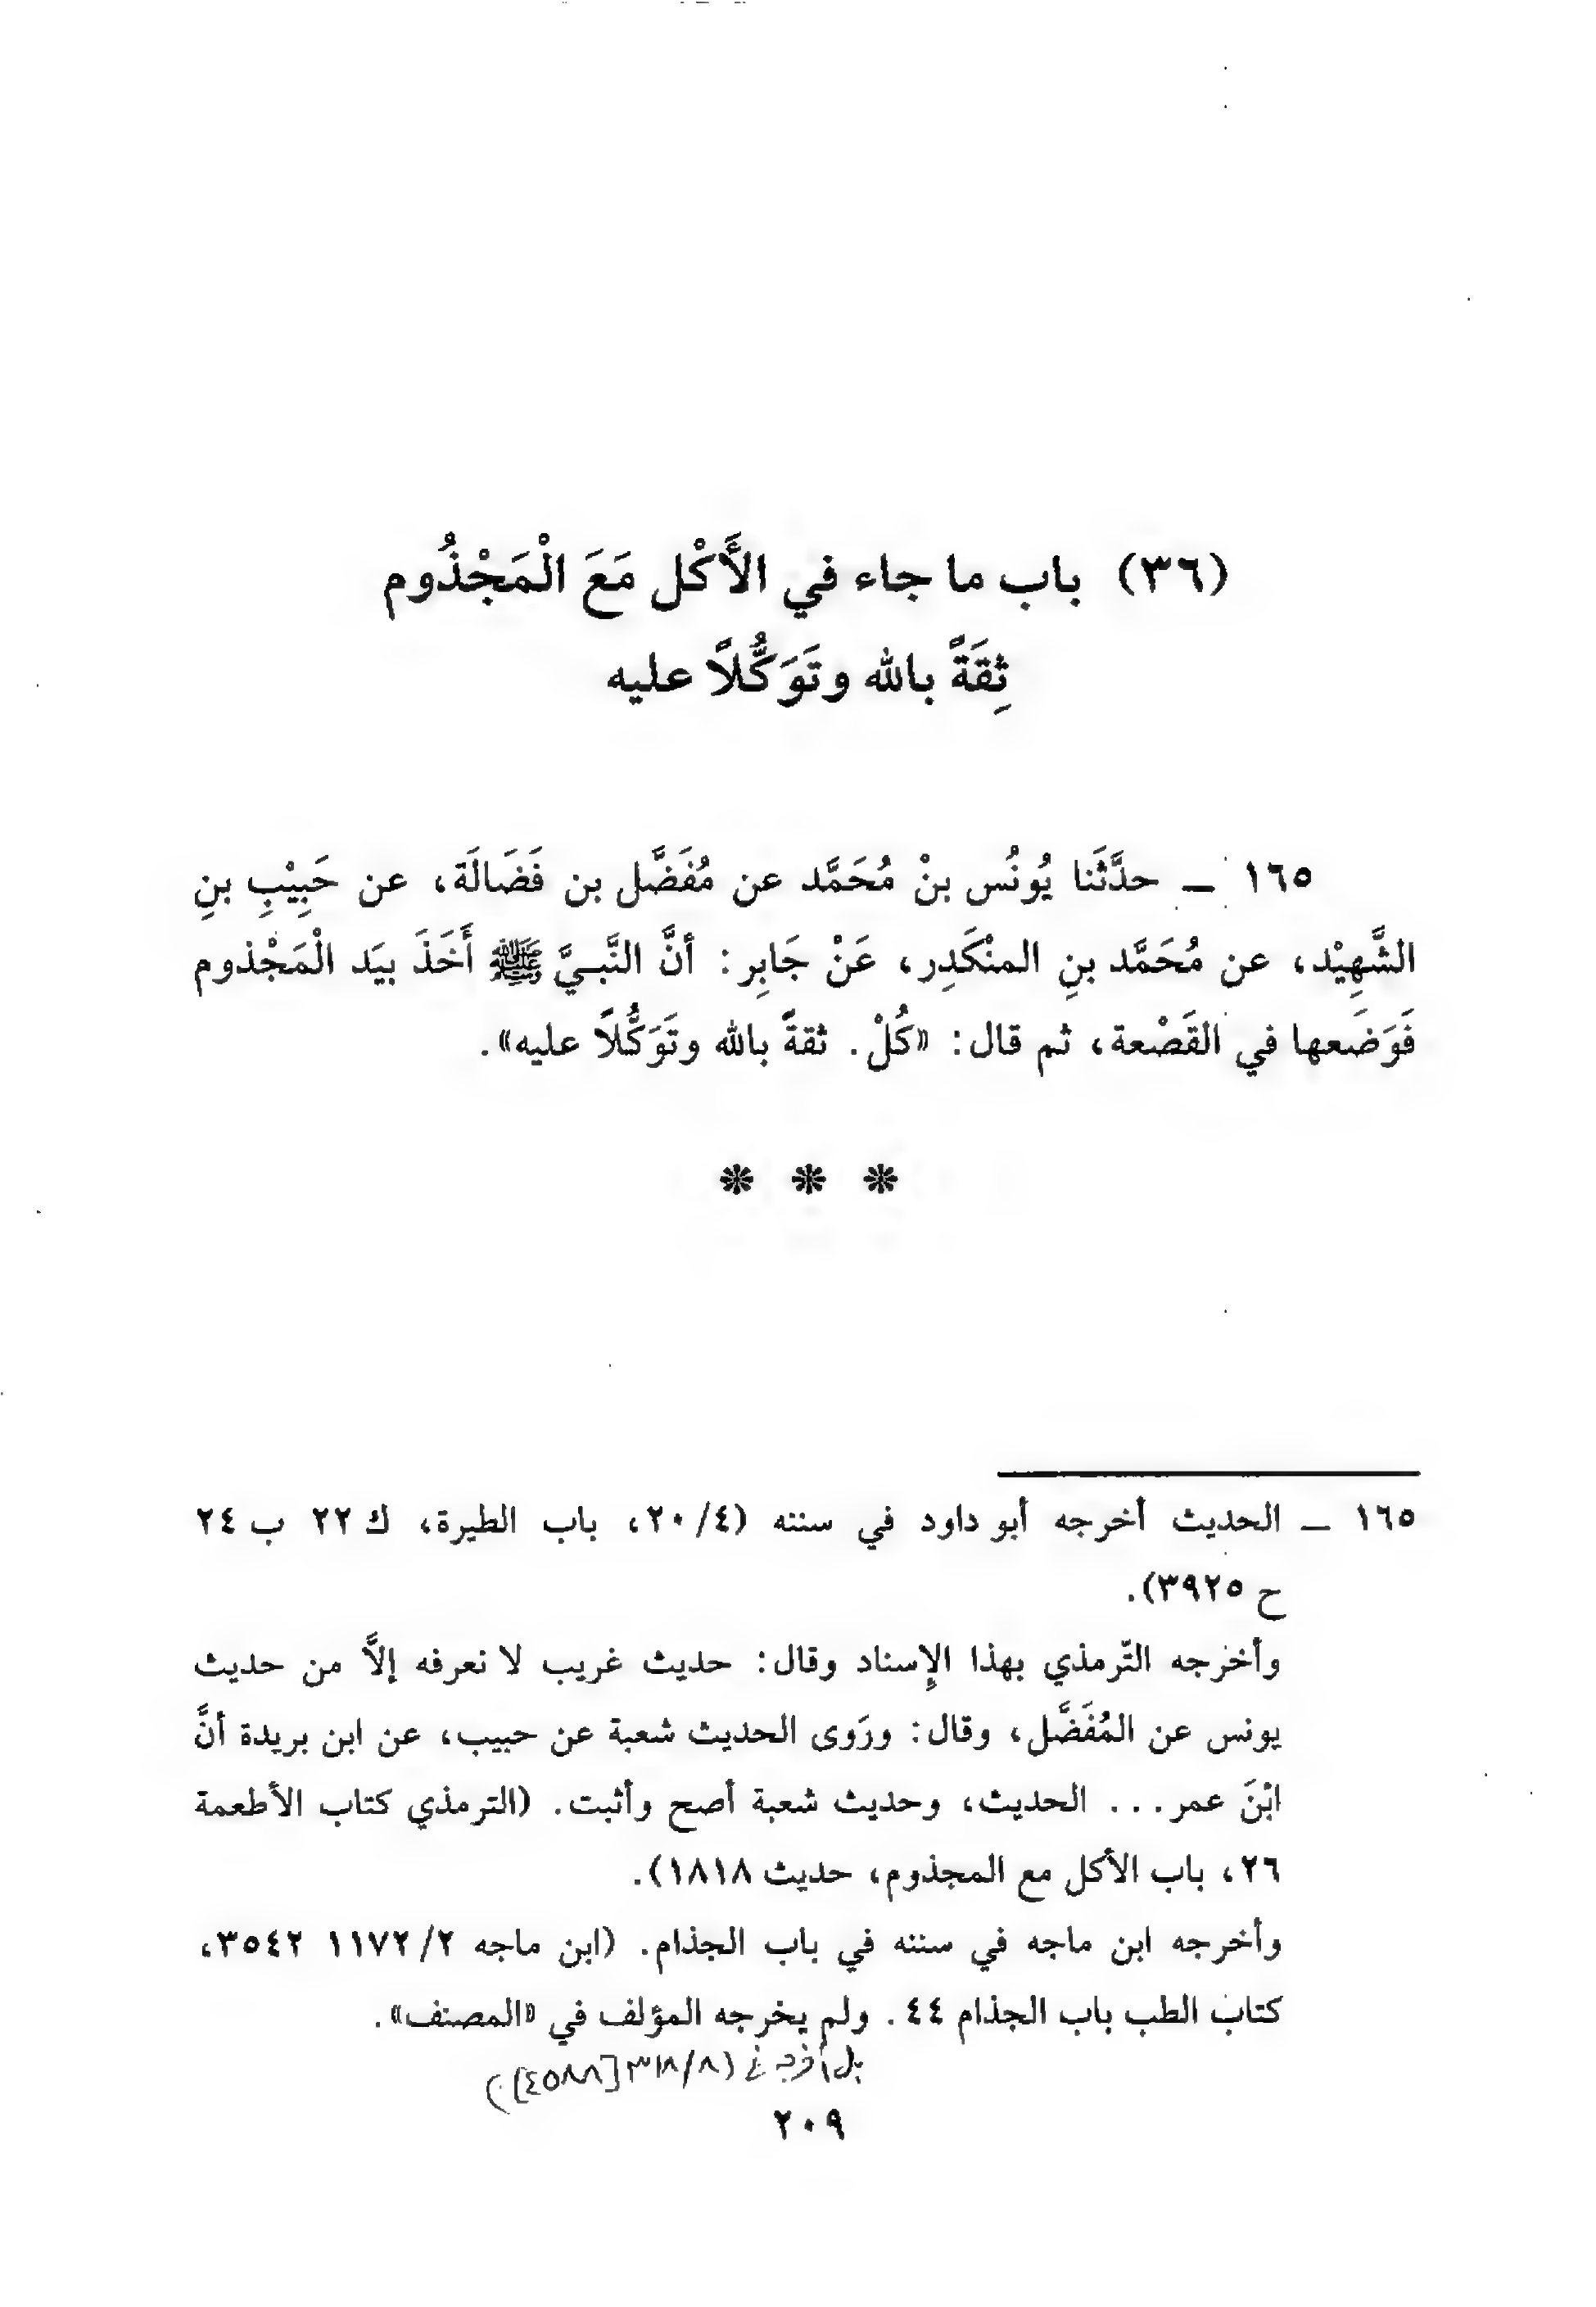 (٣٦) باب ما جاء في الأَكْل مَعَ الْمَجْذُوم
ثِقَةً بالله وتَوَكُّلاً عليه
١٦٥ ـ حدَّثَنا يُونُس بنْ مُحَمَّد عن مُفَضَّل بن فَضَالَة، عن حَبِيْبِ بنِ
الشَّهِيْد، عن مُحَمَّد بنِ المنْكَدِر، عَنْ جَابِر: أنَّ النَّبيَّ ﷺ أَخَذَ بيَد الْمَجْذوم
فَوَضَعها في القَصْعة، ثم قال: «كُلْ. ثقةً بالله وتَوَكُّلاً عليه».
* * *
١٦٥ ـ الحديث أخرجه أبو داود في سننه (٢٠/٤، باب الطيرة، ك ٢٢ ب ٢٤
ح ٣٩٢٥).
وأخرجه التّرمذي بهذا الإِسناد وقال: حديث غريب لا نعرفه إلاَّ من حديث
يونس عن المُفَضَّل، وقال: ورَوى الحديث شعبة عن حبيب، عن ابن بريدة أنَّ
ابْنَ عمر... الحديث، وحديث شعبة أصح وأثبت. (الترمذي كتاب الأطعمة
٢٦، باب الأكل مع المجذوم، حديث ١٨١٨).
وأخرجه ابن ماجه في سننه في باب الجذام. (ابن ماجه ١١٧٢/٢ ٣٥٤٢،
كتاب الطب باب الجذام ٤٤. ولم يخرجه المؤلف في «المصنف».
بل أخرجه في (٣١٨/٨ [٤٥٨٨])
٢٠٩